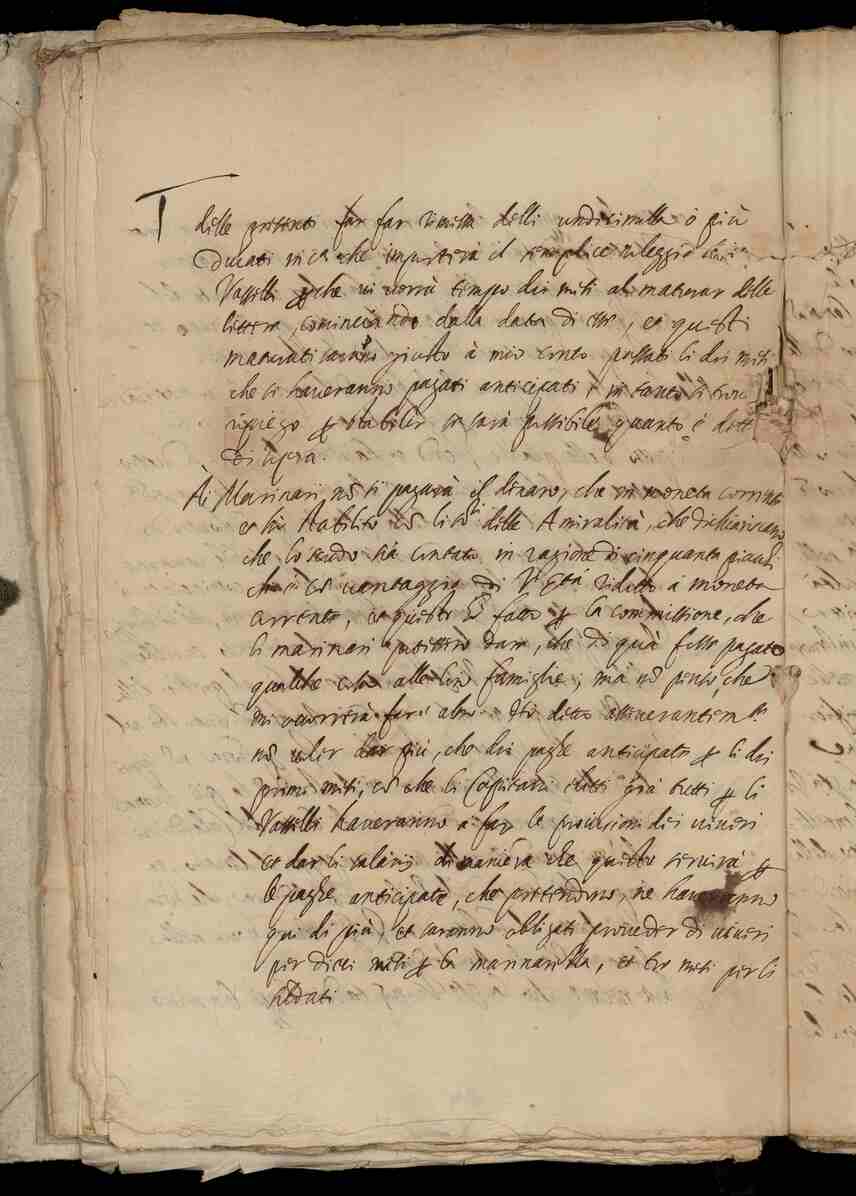 delle presenti far far rimessa delli undicimilla ò più
Ducati in ca che importerà il semplice noleggio
Vasselli che vi verrà tempo doi mesi al maturar delle
littere, cominciando dalla data di esse, et questi
maturati saranno giusto à mio conto passati li doi mesi
che si haveranno pagati anticipati, in tanto si trov
ripiego ꝑ stabilir se sarà possibile quanto è dett
di sopra.
Ai Marinari, nō si pagarà il dinaro, che in moneta corrente
et hò stabilito cō li delle Amiralità, che dichiariscano
che lo scudo sia contato in ragione di cinquanta
ch'è cō vantaggio di ridotto à moneta
corrente, et questo hò fatto ꝑ la commissione, che
li marinari potessero dare, che di quà fosse pagato
qualche cosa alle loro famiglie; mà nō penso, che
mi occorrerà far altro. Hò detto
nō voler dar più, che doi paghe anticipate ꝑ li doi
primi mesi, cō che li Capitani eletti già tutti ꝑ li
Vasselli haveranno à far le provisioni dei viveri
et dar li salarij di maniera che questo servirà ꝑ
le paghe anticipate, che pretendono, ne haveranno
qui di più, et saranno obligati proveder di viveri
per dieci mesi ꝑ la marinarezza, et tre mesi per li
soldati